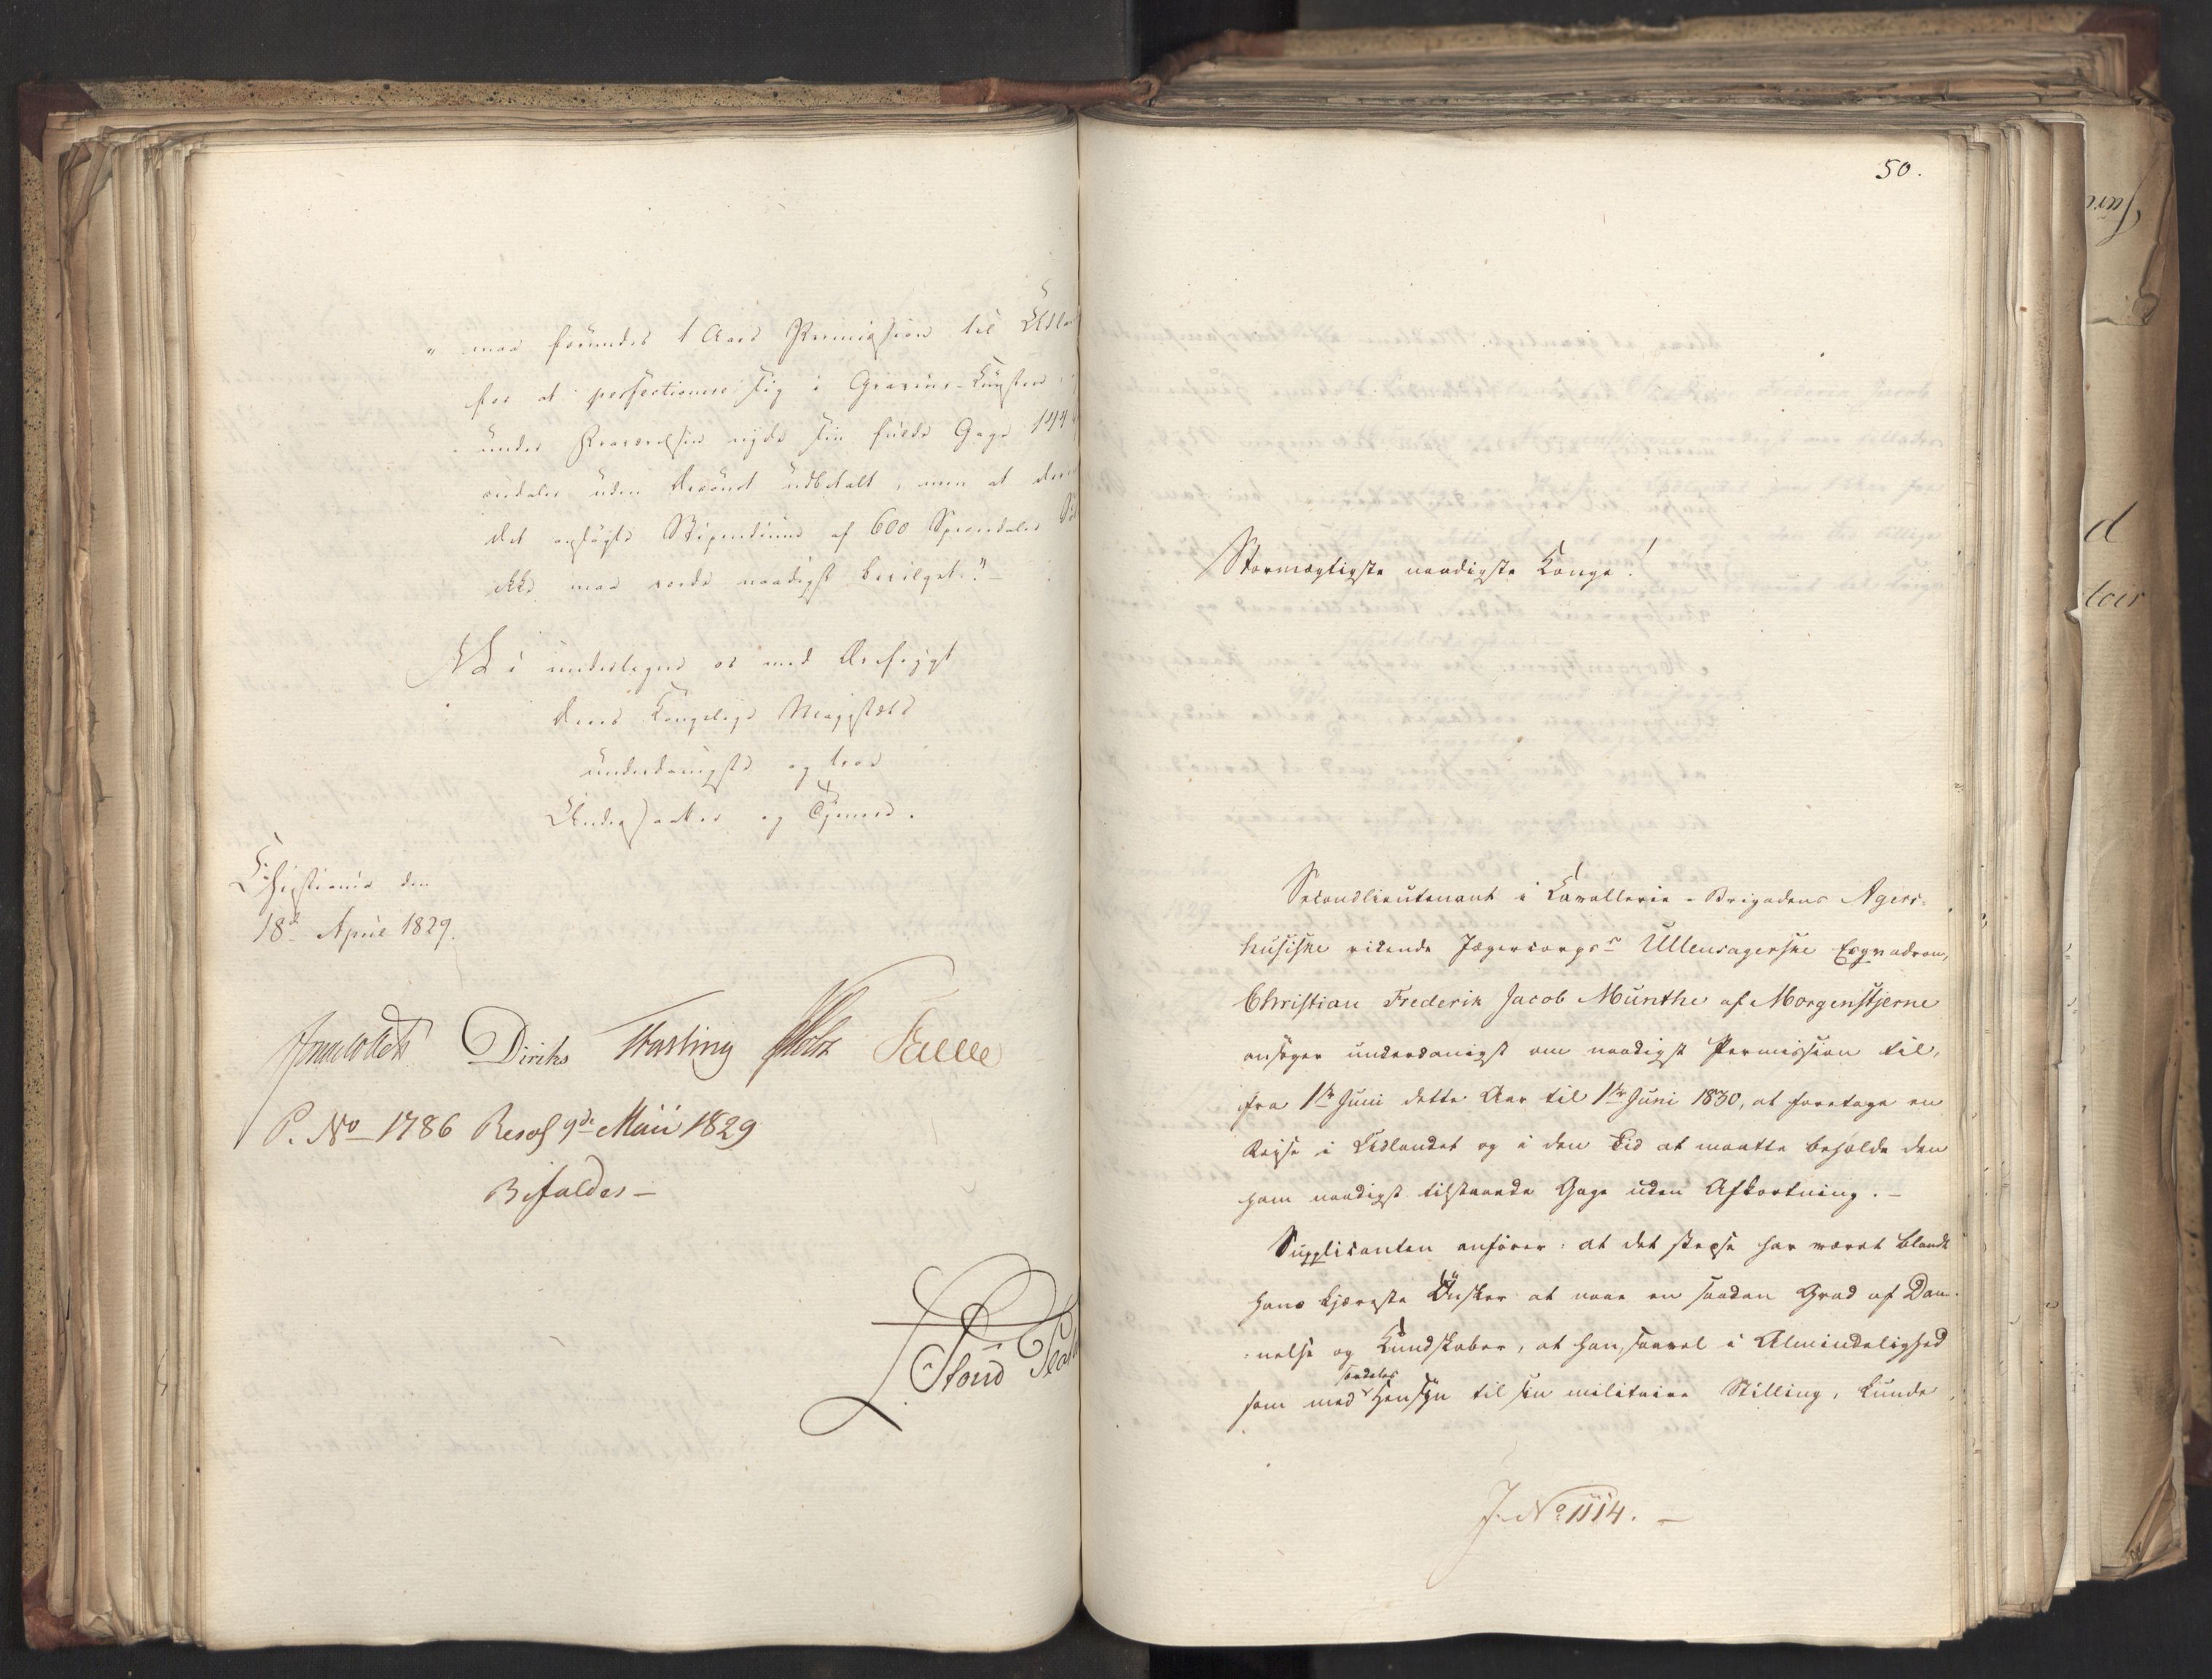 " maa forundes 1 Aars Permission til Udlan
for at perfectionere sig i Graveur-Kunsten
under Fraværelsen nyde sin fulde Gage 144
uden udbetalt, men at
det ansøgte Stipendium af 600 Speciedaler
ikke maa vorde naadigst bevilget."–
Vi underlegne os med Ærefrygt
Deres Kongelige Majestæts
underdanigste og troe
Undersaatter og Tjenere.
Christiania den
18d April 1829.
Diriks Fasting Holst
P. No 1786 Resol 9de Maii 1829
Bifaldes –
50.
Stormægtigste naadigste Konge!
Secondlieutenant i Cavallerie-Brigadens Agers-
husiske ridende Jægercorps's Ullensagerske Esqvadron,
Christian Frederik Jacob Munthe af Morgenstjerne
ansøger underdanigst om naadigst Permission til,
fra 1ste Juni dette Aar til 1ste Juni 1830, at foretage en
Rejse i Udlandet og i den Tid at maatte beholde den
ham naadigst tilstaaede Gage uden Afkortning. –
Supplicanten anfører: at det stedse har været blandt
hans kjæreste Ønsker at naae en saadan Grad af Dan-
nelse og Kundskaber, at han, saavel i Almindelighed
som med særdeles Hensyn til sin militaire Stilling, kunde
J. No 1114. –